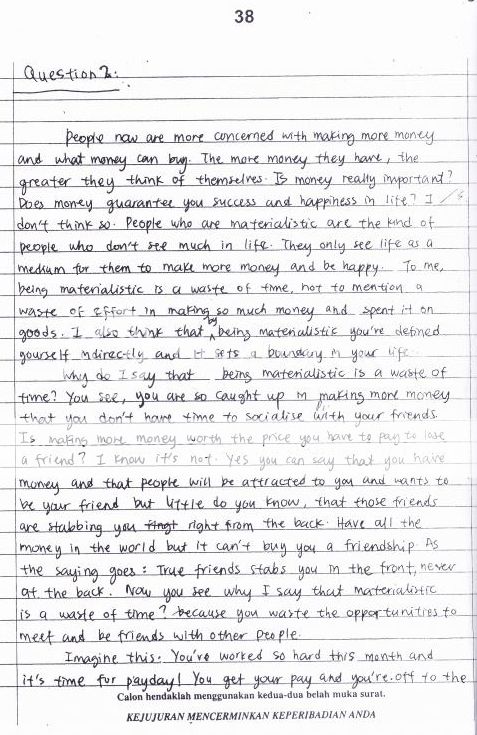 38
Question 2:
People now are more concerned with making more money
and what money can buy. The more money they have, the
greater they think of themselves. Is money really important?
Does money guarantee you success and happiness in life? I
don't think so. People who are materialistic are the kind of
people who don't see much in life. They only see life as a
medium for them to make more money and be happy. To me,
being materialistic is a waste of time, not to mention a
waste of effort in making so much money and spent it on
goods. I also think that by being materialistic you're defined
yourself indirectly and it sets a boundary in your life.
Why do I say that being materialistic is a waste of
time? You see, you are so caught up in making more money
that you don't have time to socialise with your friends.
Is making more money worth the price you have to pay to lose
a friend? I know it's not. Yes you can say that you have
money and that people will be attracted to you and wants to
be your friend but little do you know, that those friends
are stabbing you right from the back. Have all the
money in the world but it can't buy you a friendship. As
the saying goes: True friends stabs you in the front, never
at the back. Now you see why I say that materialistic
is a waste of time? because you waste the opportunities to
meet and be friends with other people.
Imagine this: You've worked so hard this month and
it's time for payday! You get your pay and you're off to the
Calon hendaklah menggunakan kedua-dua belah muka surat.
KEJUJURAN MENCERMINKAN KEPERIBADIAN ANDA